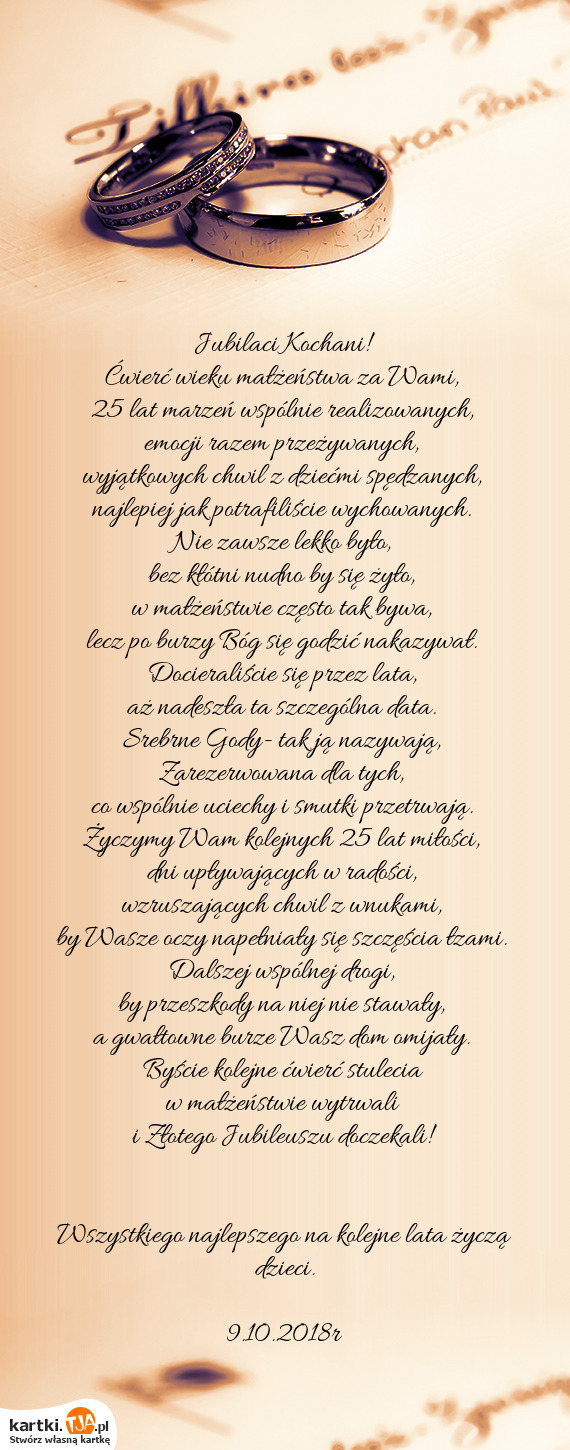 Jubilaci Kochani!
Ćwierć wieku małżeństwa za Wami,
25 lat marzeń wspólnie realizowanych,
emocji razem przeżywanych,
wyjątkowych chwil z dziećmi spędzanych,
najlepiej jak potrafiliście wychowanych.
Nie zawsze lekko było,
bez kłótni nudno by się żyło,
w małżeństwie często tak bywa,
lecz po burzy Bóg się godzić nakazywał.
Docieraliście się przez lata,
aż nadeszła ta szczególna data.
Srebrne Gody- tak ją nazywają,
Zarezerwowana dla tych,
co wspólnie uciechy i smutki przetrwają.
Życzymy Wam kolejnych 25 lat miłości,
dni upływających w radości,
wzruszających chwil z wnukami,
by Wasze oczy napełniały się szczęścia łzami.
Dalszej wspólnej drogi,
by przeszkody na niej nie stawały,
a gwałtowne burze Wasz dom omijały.
Byście kolejne ćwierć stulecia
w małżeństwie wytrwali
i Złotego Jubileuszu doczekali!
Wszystkiego najlepszego na kolejne lata życzą
dzieci.
9.10.2018r
kartki.TJA.pl
Stwórz własną kartkę